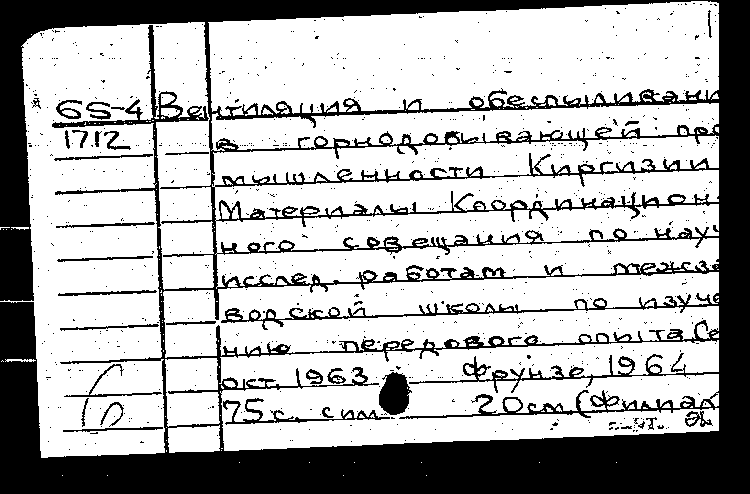 6S-4 Вентиляция и обеспыливани
1712 в горнодобывающей про
мышленности Киргизии
Материалы Координацион-
ного совещания по науч
исслед. работам и межза
водской школы по изуче
нию передового опыта. Се
окт. 1963 Фрунзе, 1964
75 с. с илл 20 см. (Филиал
6